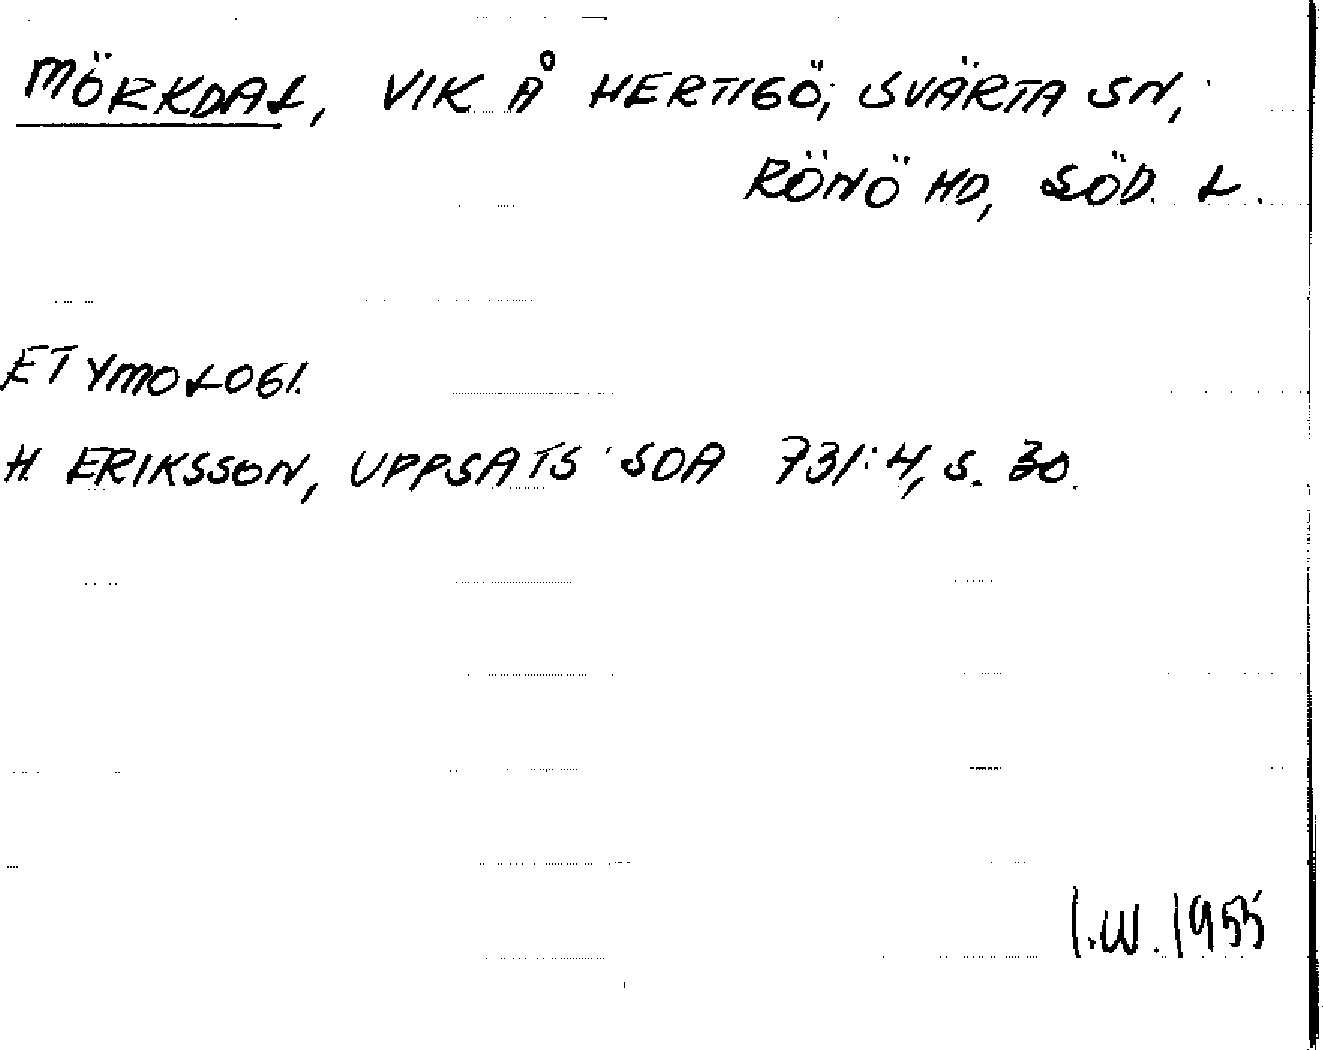 MÖRKDAL, VIK Å HERTIGÖ, SVÄRTA SN,
RÖNÖ HD, SÖD. L.
ETYMOLOGI.
H. ERIKSSON, UPPSATS SOA 731:4, S. 30.
I.W. 1955